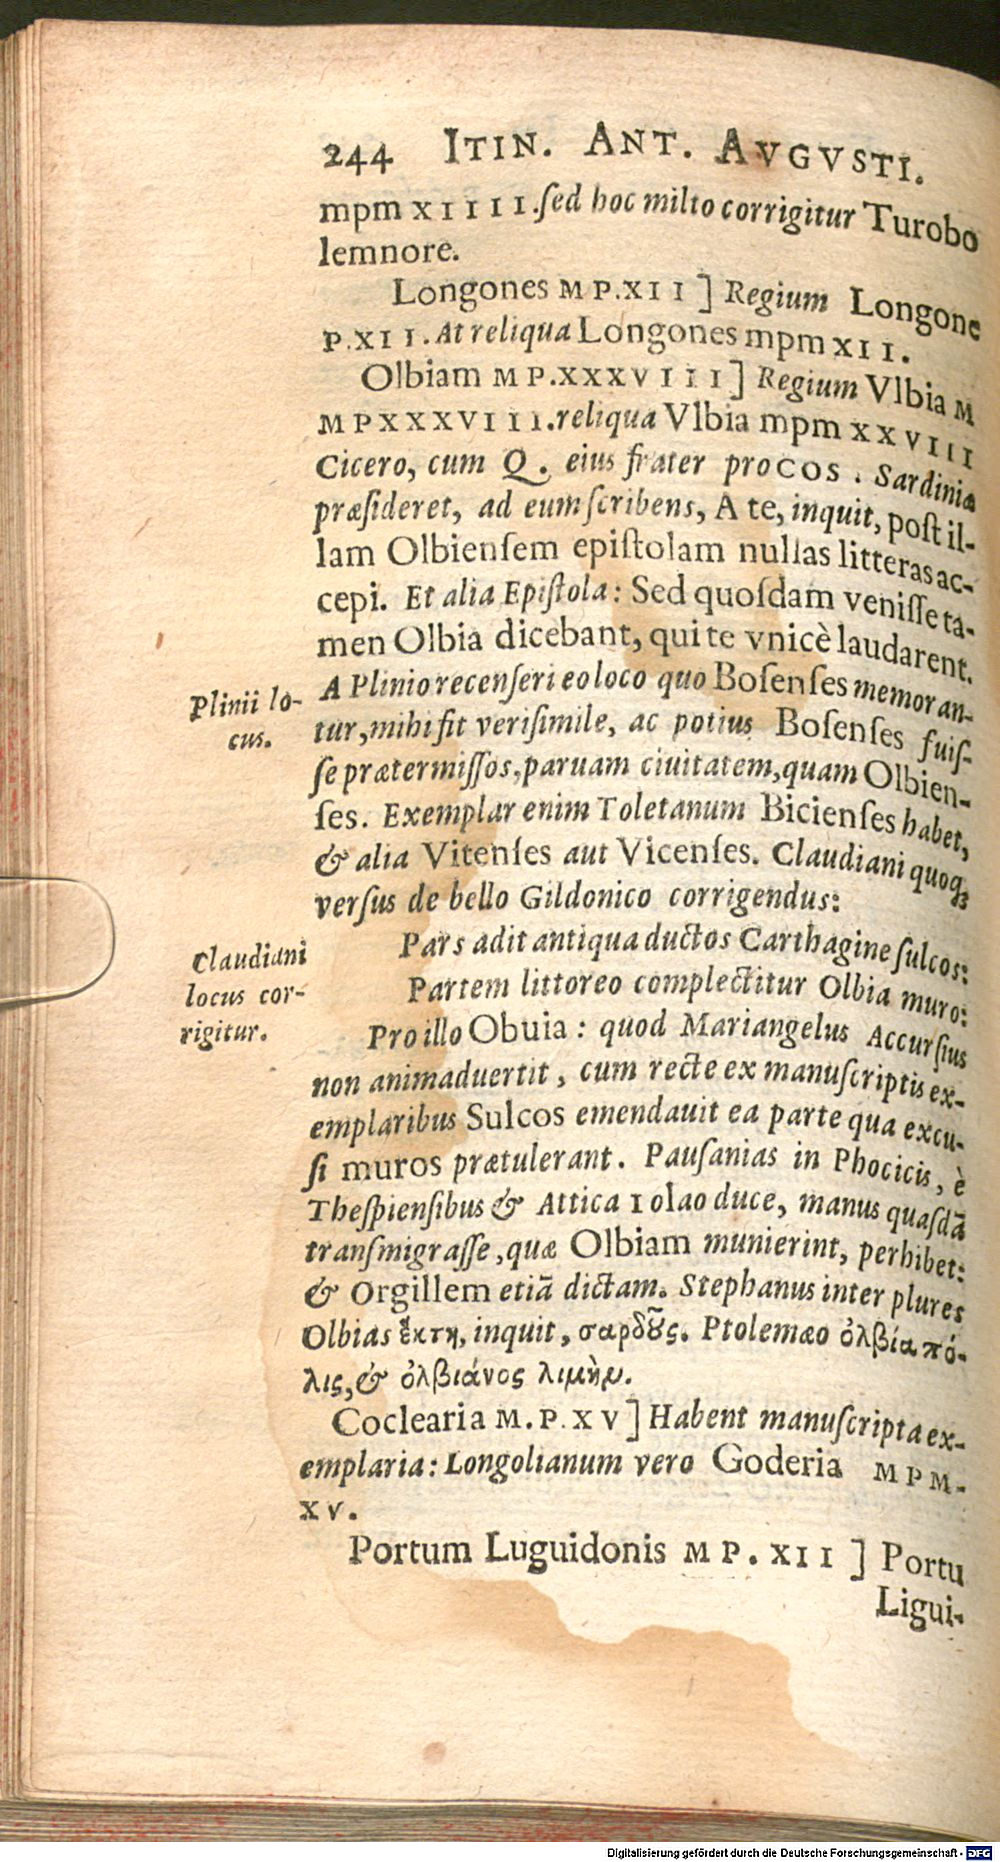 244 ITIN. ANT. AVGVSTI.
mpm XIIII. ſed hoc milto corrigitur Turobo
lemnore.
Longones MP.XII] Regium Longone
P.XII. At reliqua Longones mpm XII.
Olbiam MP.XXXVIII] Regium Vlbia M
MPXXXVIII. reliqua Vlbia mpm XXVIII
Cicero, cum Q. eius frater proCOS. Sardiniæ
præſideret, ad eum ſcribens, A te, inquit, poſt il-
lam Olbienſem epiſtolam nullas litteras ac-
cepi. Et alia Epiſtola: Sed quoſdam veniſſe ta-
men Olbia dicebant, qui te vnicè laudarent.
Plinii lo-
cus.
A Plinio recenſeri eo loco quo Boſenſes memoran-
tur, mihi fit veriſimile, ac potius Boſenſes fuiſ-
ſe prætermiſſos, paruam ciuitatem, quam Olbien-
ſes. Exemplar enim Toletanum Bicienſes habet,
& alia Vitenſes aut Vicenſes. Claudiani quoq;
verſus de bello Gildonico corrigendus:
Claudiani
locus cor-
rigitur.
Pars adit antiqua ductos Carthagine ſulcos:
Partem littoreo complectitur Olbia muro:
Pro illo Obuia: quod Mariangelus Accurſius
non animaduertit, cum recte ex manuſcriptis ex-
emplaribus Sulcos emendauit ea parte qua excu-
ſi muros prætulerant. Pauſanias in Phocicis, è
Theſpienſibus & Attica Iolao duce, manus quaſdā
tranſmigraſſe, quæ Olbiam munierint, perhibet:
& Orgillem etiā dictam. Stephanus inter plures
Olbias ἕκτη, inquit, σαρδοῦς. Ptolemæo ὀλβία πό-
λις, & ὀλβιάνος λιμὴν.
Coclearia M.P.XV] Habent manuſcripta ex-
emplaria: Longolianum vero Goderia MPM-
XV.
Portum Luguidonis MP.XII] Portu
Ligui-
Digitalisierung gefördert durch die Deutsche Forschungsgemeinschaft - DFG